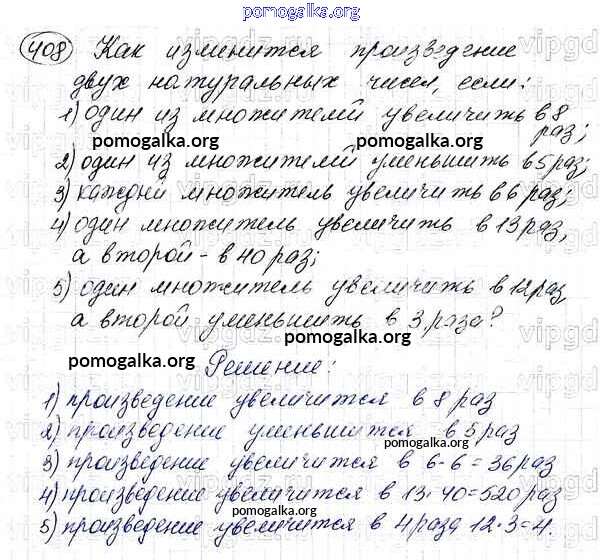 pomogalka.org
408 Как изменится произведение
двух натуральных чисел, если:
1) один из множителей увеличить в 8
раз;
pomogalka.org pomogalka.org
2) один из множителей уменьшить в 5 раз;
3) каждый множитель увеличить в 6 раз;
4) один множитель увеличить в 13 раз,
а второй - в 40 раз;
5) один множитель увеличить в 12 раз
а второй уменьшить в 3 раза?
pomogalka.org pomogalka.org
Решение:
1) произведение увеличится в 8 раз
2) произведение уменьшится в 5 раз
pomogalka.org
3) произведение увеличится в 6·6=36 раз
4) произведение увеличится в 13·40=520 раз
pomogalka.org
5) произведение увеличится в 4 раза 12:3=4.